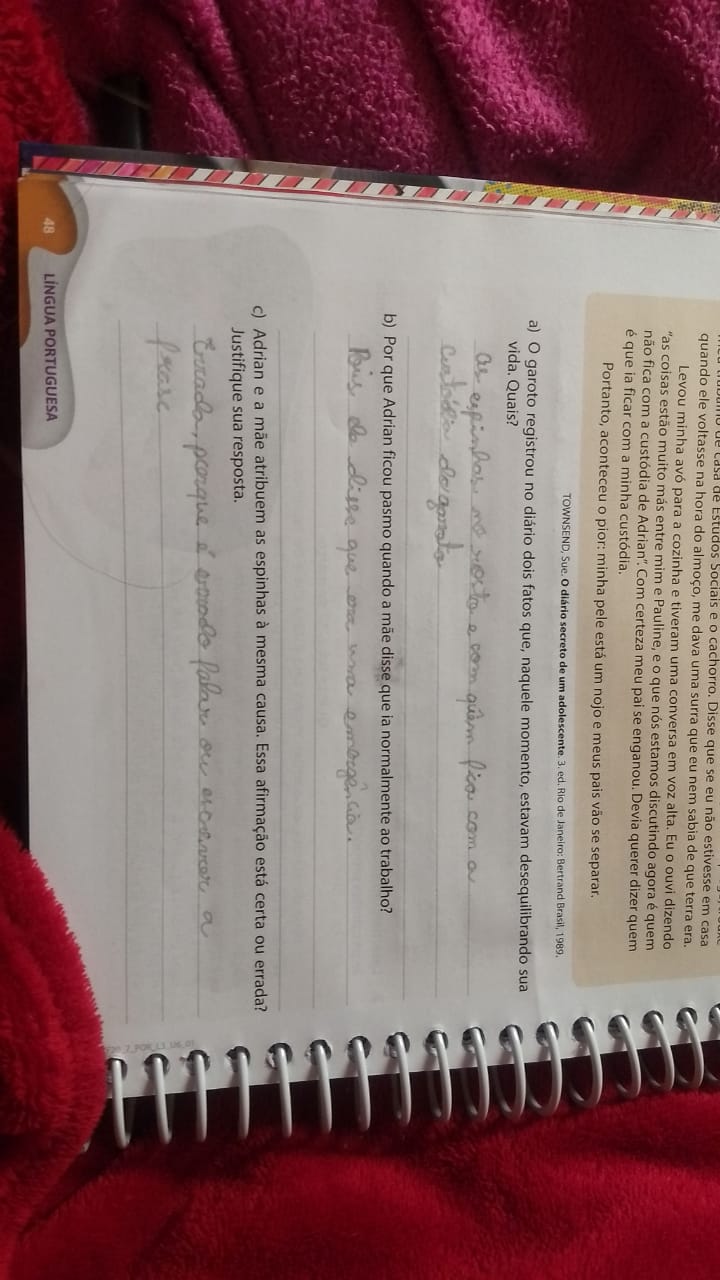 quando ele voltasse na hora do almoço, me dava uma surra que eu nem sabia de que terra era.
Levou minha avó para a cozinha e tiveram uma conversa em voz alta. Eu o ouvi dizendo
"as coisas estão muito más entre mim e Pauline, e o que nós estamos discutindo agora é quem
não fica com a custódia de Adrian". Com certeza meu pai se enganou. Devia querer dizer quem
é que ia ficar com a minha custódia.
Portanto, aconteceu o pior: minha pele está um nojo e meus pais vão se separar.
TOWNSEND, Sue. O diário secreto de um adolescente. 3. ed. Rio de Janeiro: Bertrand Brasil, 1989.
a) O garoto registrou no diário dois fatos que, naquele momento, estavam desequilibrando sua
vida. Quais?
As espinhas no rosto e com quem fica com a
custódia do garoto
b) Por que Adrian ficou pasmo quando a mãe disse que ia normalmente ao trabalho?
Pois ele disse que era uma emergência.
c) Adrian e a mãe atribuem as espinhas à mesma causa. Essa afirmação está certa ou errada?
Justifique sua resposta.
Errada, porque é errado falar ou escrever a
frase
48 LÍNGUA PORTUGUESA